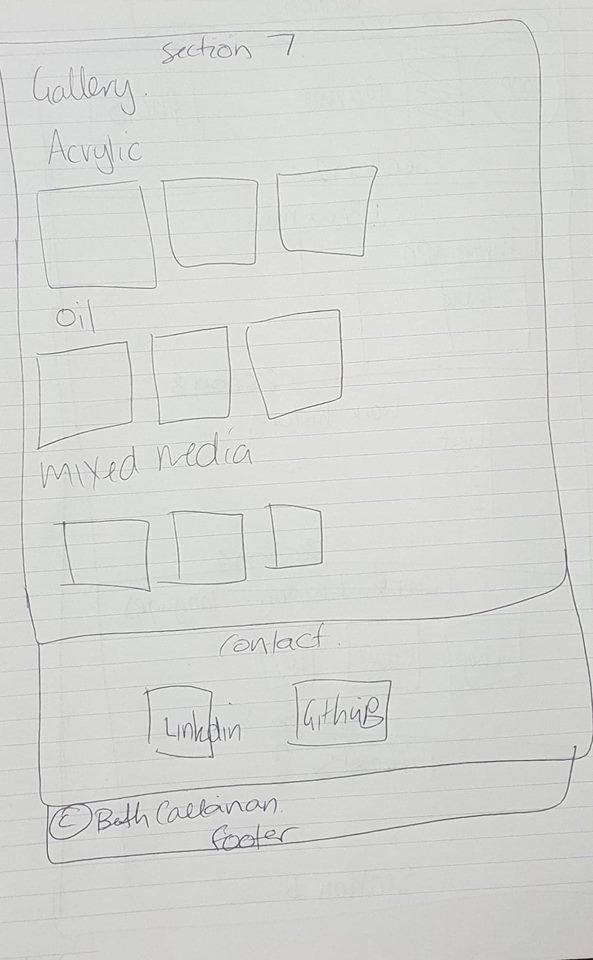 Section 7
Gallery.
Acrylic
oil
mixed media
Contact.
Linkdin
GithuB
© Beth Callanan.
footer